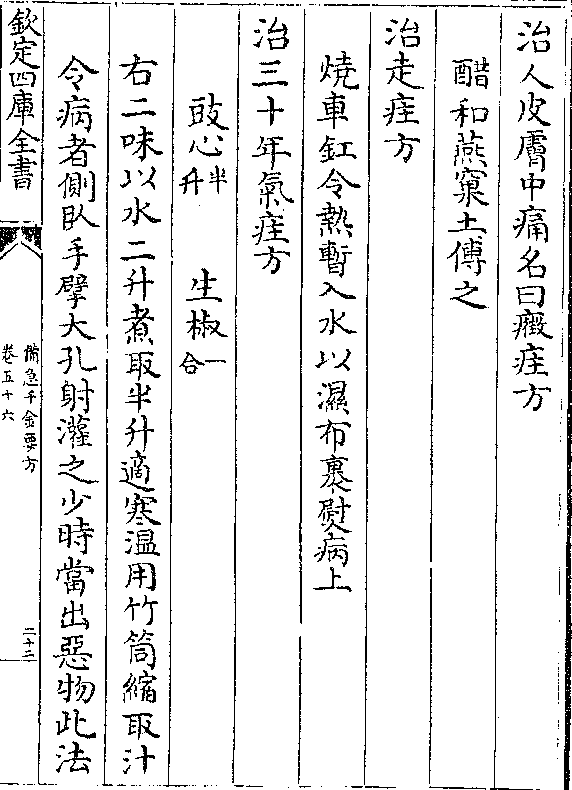 治人皮膚中痛名曰癥疰方
醋和燕窠土傅之
治走疰方
燒車釭令熱暫入水以濕布裹熨病上
治三十年氣疰方
豉心半升 生椒一合
右二味以水二升煮取半升適寒溫用竹筒縮取汁
令病者側臥手擘大孔射灌之少時當出惡物此法
欽定四庫全書
備急千金要方
卷五十六
二十二